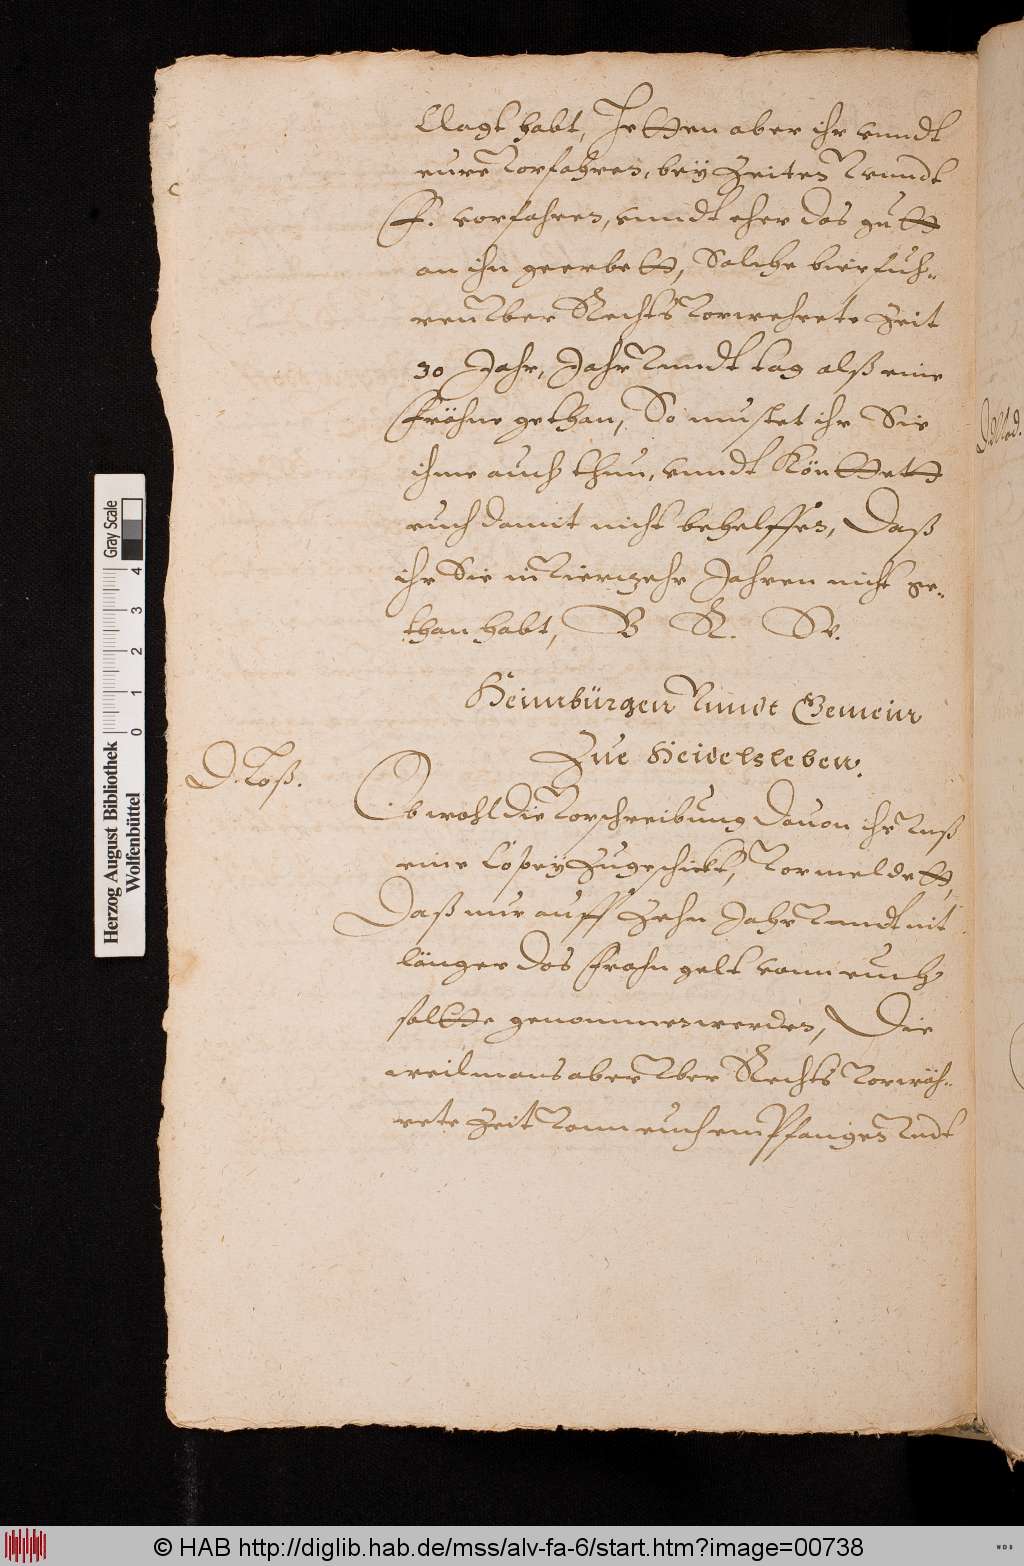 Klagt habt, Hetten aber ihr vnndt
eure Vorfahren, bey Zeiten Vnndt
E. vorfahren, vnndt eher das gutt
an ihn geerbett, Solche bierfuh-
ren Vber Rechts Vorwehrete Zeit
30 Jahr, Jahr Vnndt tag alß eine
Fröhne gethan, So mustet ihr Sie
ihme auch thun, vnndt Könttett
euch damit nicht behelffen, Daß
ihr Sie in Vierzehn Jahren nicht ge-
than habt, V R. W.
Heimbürgen Vnndt Gemein
Zue Heidelsleben.
D. Voß.
Obwohl die Vorschreibung dauon ihr Vnß
eine Copey Zugeschickt, Vormeldett,
Daß nur auff Zehn Jahr Vnndt nit
länger das Frohn gelt vonn euch
soltte genommen werden, Die
weil mans aber Vber Rechts Vorwäh-
rete Zeit Vonn euch empfangen Vndt
Herzog August Bibliothek
Wolfenbüttel
0 1 2 3 4
Gray Scale
© HAB http://diglib.hab.de/mss/alv-fa-6/start.htm?image=00738
WDB